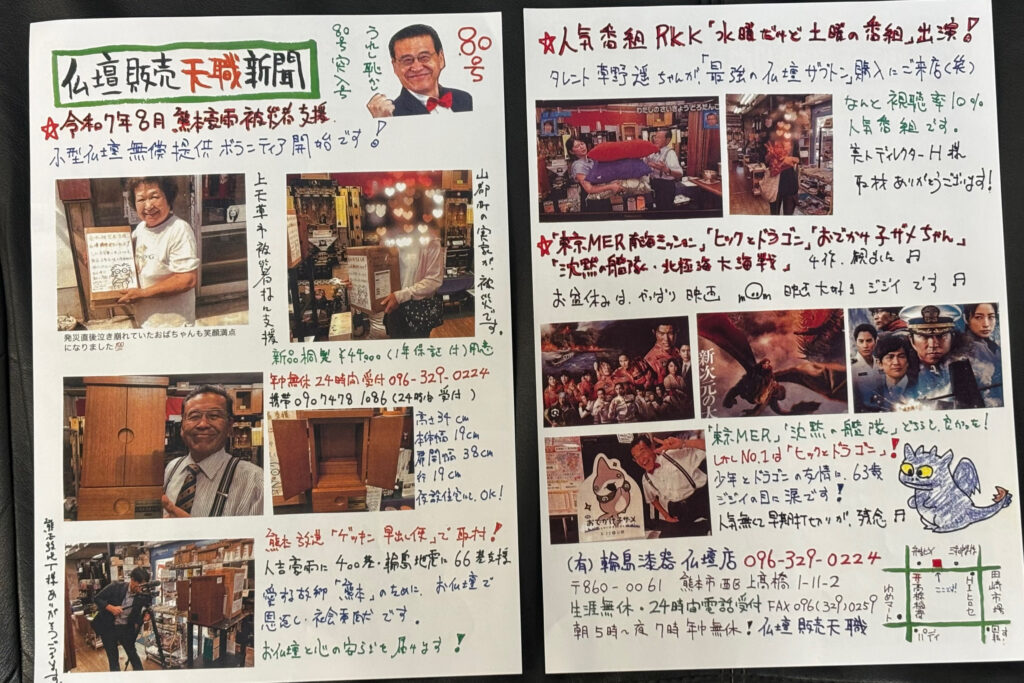 仏壇販売天職新聞
うれし恥かし
80号突入号
80号
☆令和7年8月 熊本豪雨被災者支援.
小型仏壇無償提供ボランティア開始です!
上天草市被災者様に支援
山都町の実家が、被災です。
発災直後泣き崩れていたおばちゃんも笑顔満点
になりました💯
新品桐製 ¥44,000 (1年保証付)用意
年中無休24時間受付 096-329-0224
携帯 090 7478 1086 (24時間受付)
高さ34cm
本体幅19cm
扉開幅38cm
奥行19cm
仮設住宅にも、OK!
熊本放送「ゲツキン早出し便」で取材!
人吉豪雨に400基・輪島地震に66基支援
愛する故郷「熊本」のために、お仏壇で
恩返し・社会貢献です.
お仏壇と心の安らぎを届けます!
☆人気番組RKK「水曜だけど土曜の番組」出演!
タレント 遥ちゃんが「最強の仏壇ザブトン」購入にご来店(笑)
わたしのさいきょうどろだんご
なんと視聴率10%
人気番組です。
美人ディレクターH様
取材ありがとうございます!
☆「東京MER南海ミッション」「ヒックとドラゴン」「おでかけ子ザメちゃん」
「沈黙の艦隊・北極海大海戦」 4作、観ました♬
お盆休みは、やっぱり映画 映画大好きジジイです♬
新次元の
おでかけ子ザメ
「東京MER」「沈黙の艦隊」どちらも、良かった!
しかしNo.1は「ヒックとドラゴン」!
少年とドラゴンの友情に63歳
ジジイの目に涙です!
人気無くて早期打ち切りが、残念♬
(有)輪島漆器仏壇店 096-329-0224
〒860-0061 熊本市西区上高橋1-11-2
生涯無休・24時間電話受付 FAX 096(329)0259
朝5時〜夜7時 年中無休! 仏壇販売天職
ここです!
田崎市場